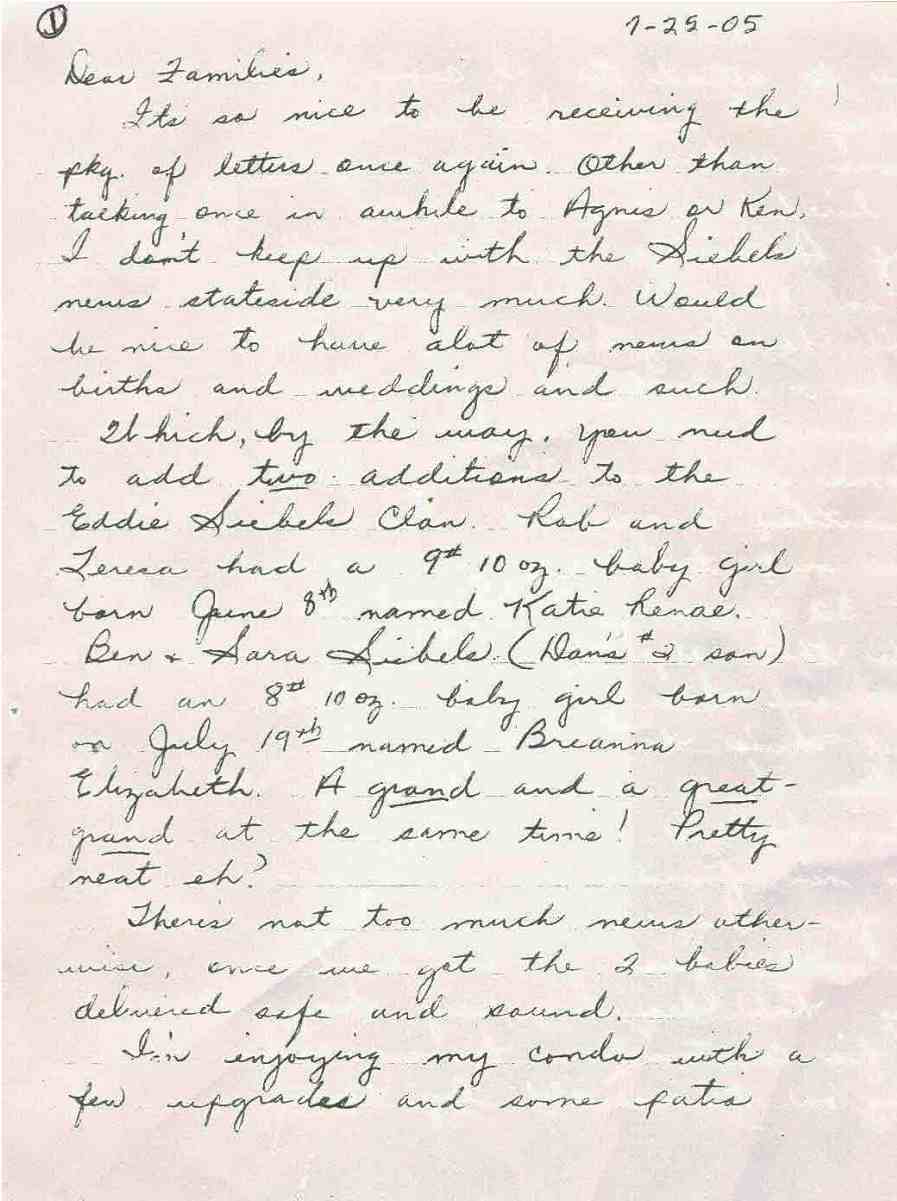 ① 7-25-05
Dear Families,
Its so nice to be receiving the
pkg. of letters once again. Other than
talking once in awhile to Agnes or Ken,
I don't keep up with the Siebels
news stateside very much. Would
be nice to have alot of news on
births and weddings and such.
Which, by the way, you need
to add two additions to the
Eddie Siebels Clan. Rob and
Teresa had a 9# 10 oz. baby girl
born June 8th named Katie Renae.
Ben + Sara Siebels (Dan's #2 son)
had an 8# 10 oz. baby girl born
on July 19th named Breanna
Elizabeth. A grand and a great-
grand at the same time! Pretty
neat eh?
There's not too much news other-
wise, once we got the 2 babies
delivered safe and sound.
I'm enjoying my condo with a
few upgrades and some patio